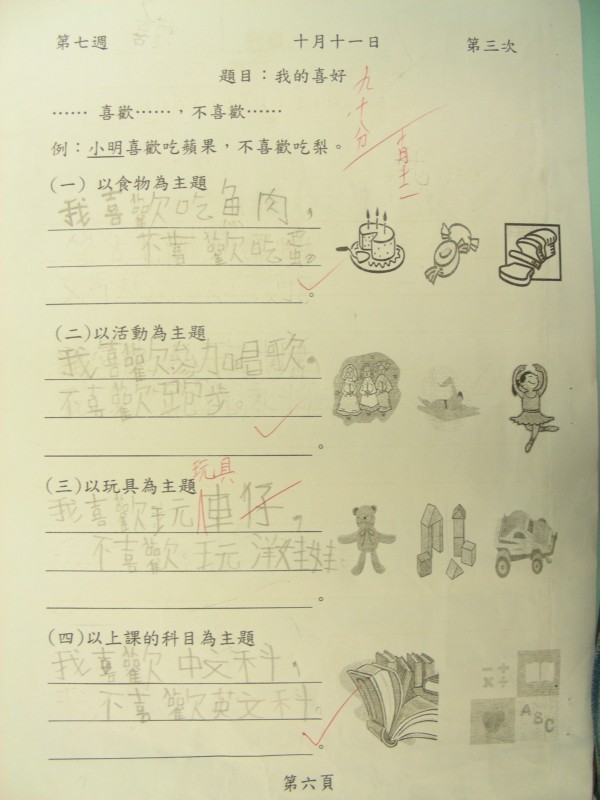 第七週 十月十一日 第三次
題目：我的喜好
…… 喜歡……，不喜歡……
九十分
十月十一
例：小明喜歡吃蘋果，不喜歡吃梨。
(一) 以食物為主題
我喜歡吃魚肉，
不喜歡吃蛋。
。
(二)以活動為主題
我喜歡參加唱歌，
不喜歡跑步。
。
(三)以玩具為主題
玩具
我喜歡玩車仔，
不喜歡玩洋娃娃
。
(四)以上課的科目為主題
我喜歡中文科，
不喜歡英文科。
。
ABC
第六頁